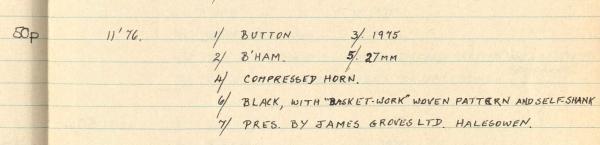 50p 11'76. 1/ BUTTON 3/ 1975
2/ B'HAM. 5/ 27mm
4/ COMPRESSED HORN.
6/ BLACK, WITH "BASKET-WORK" WOVEN PATTERN AND SELF-SHANK
7/ PRES. BY JAMES GROVES LTD. HALESOWEN.